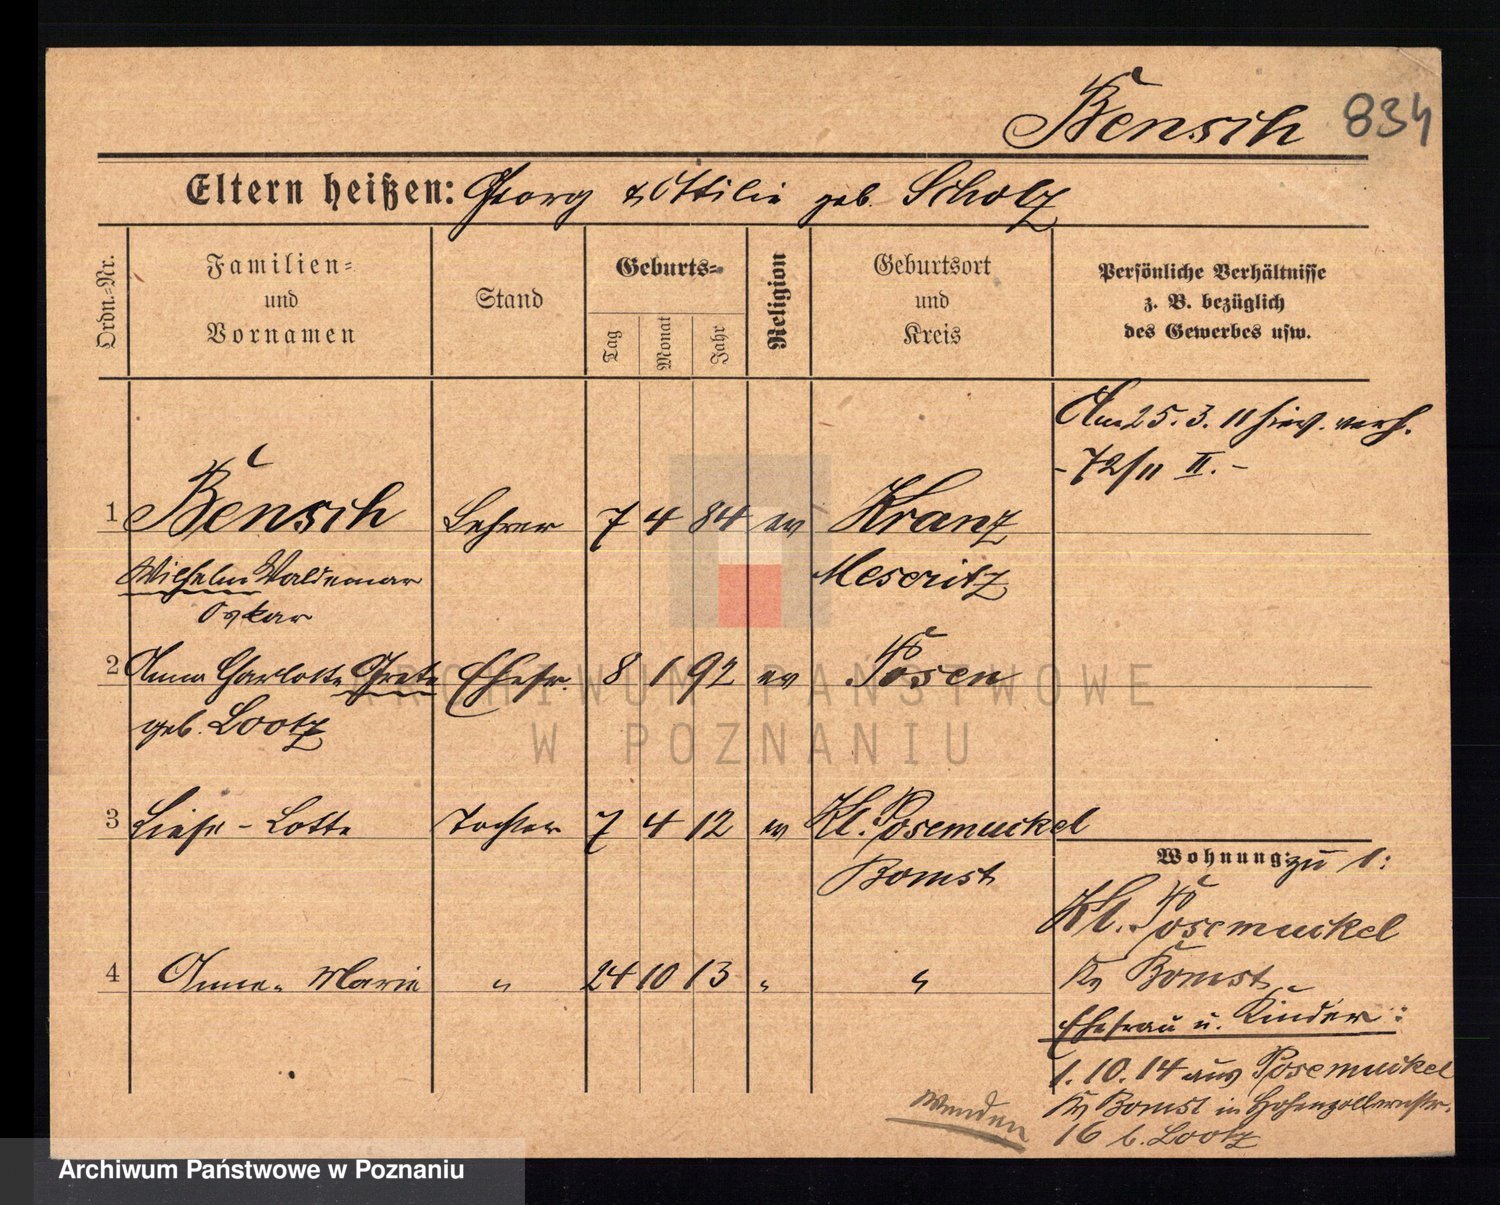 Bensch 834
Eltern heißen: Georg & Ottilie geb. Scholz
Ordn.-Nr.
Familien-
und
Vornamen
Stand
Geburts-
Tag
Monat
Jahr
Religion
Geburtsort
und
Kreis
Persönliche Verhältnisse
z. B. bezüglich
des Gewerbes usw.
Am 25. 3. 11 hier. verh.
- 72/11 II. -
1 Bensch Lehrer 7 4 84 ev Kranz
Wilhelm Waldemar Meseritz
Oskar
2 Anna Charlotte Grete Ehefr. 8 1 92 ev Posen
geb. Lootz
3 Liese-Lotte Tochter 7 4 12 ev Kl. Posemuckel
Bomst
4 Anne-Marie " 24 10 13 " "
Wohnung: zu 1:
Kl. Posemuckel
Kr Bomst
Ehefrau u. Kinder:
1. 10. 14 aus Posemuckel
Kr Bomst in Hohenzollernstr.
16 b. Lootz
Wenden
ARCHIWUM PAŃSTWOWE
W POZNANIU
Archiwum Państwowe w Poznaniu